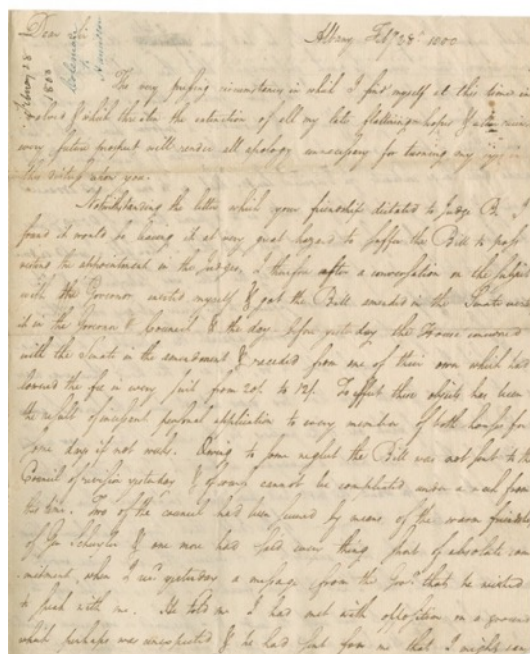 Dear Sir Albany Feby 28th 1800
February 28
1800
Coleman
to
Hamilton
The very pressing circumstances in which I find myself at this time in
volved & which threaten the extinction of all my late flattering hopes &
every future prospect will render all apology unnecessary for turning my eyes in
this writing upon you.
Notwithstanding the letter which your friendship dictated to Judge B. I
found it would be leaving it at very great hazard to suffer the Bill to pass
the appointment in the Judges, I therefore after a conversation on the subject
with the Governor exerted myself & got the Bill amended in the Senate
it in the Governor & Council & the day before yesterday the House concurred
with the Senate in the amendment & receded from one of their own which had
lowered the fee in every suit from 20/. to 12/. To effect these objects has been
the result of incessant personal application to every member of both houses for
some days if not weeks. Owing to some neglect the Bill was not sent to the
Council of revision yesterday & of course cannot be completed under a week from
this time. Two of the council had been secured by means of the warm friendship
of Gen Schuyler & one more had said every thing short of absolute com
mitment, when I recd yesterday a message from the Govr that he wished
to speak with me. He told me I had met with opposition on a ground
which perhaps was unexpected & he had sent for me that I might